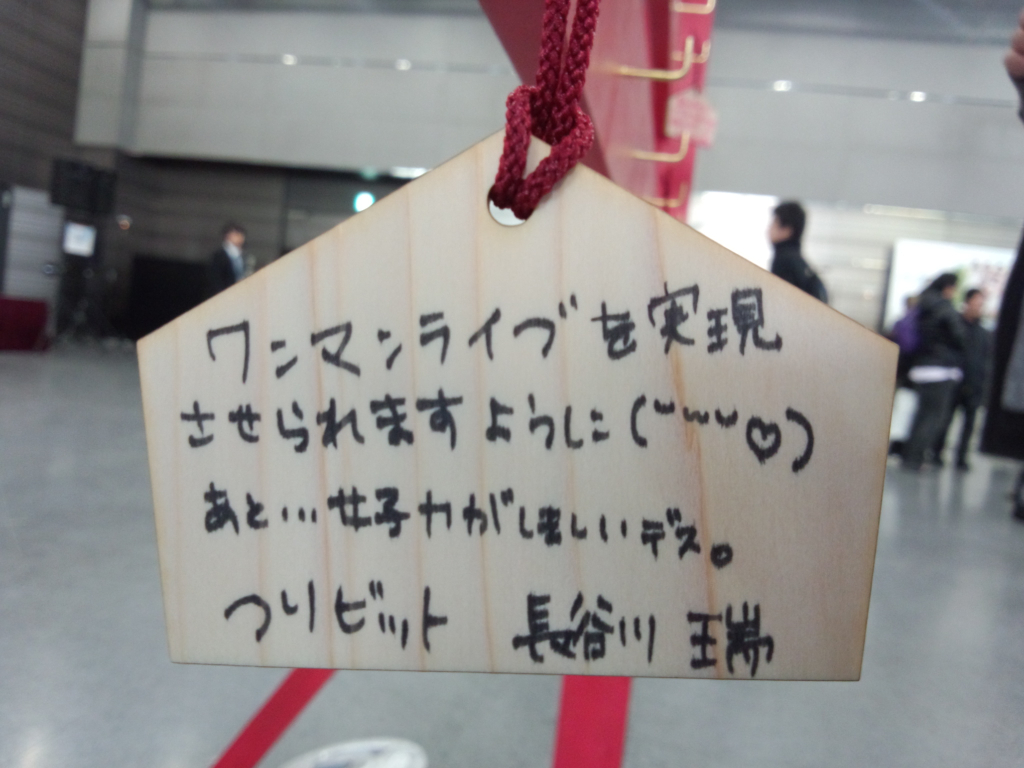 ワンマンライブを実現
させられますように(˘˘˘♡)
あと...女子力がほしいデス。
つりビット 長谷川 瑞